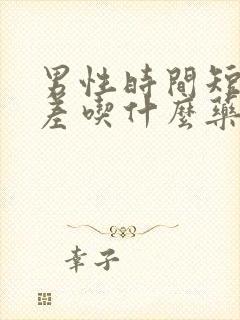 男性時間短
差喫什麼藥
幸子